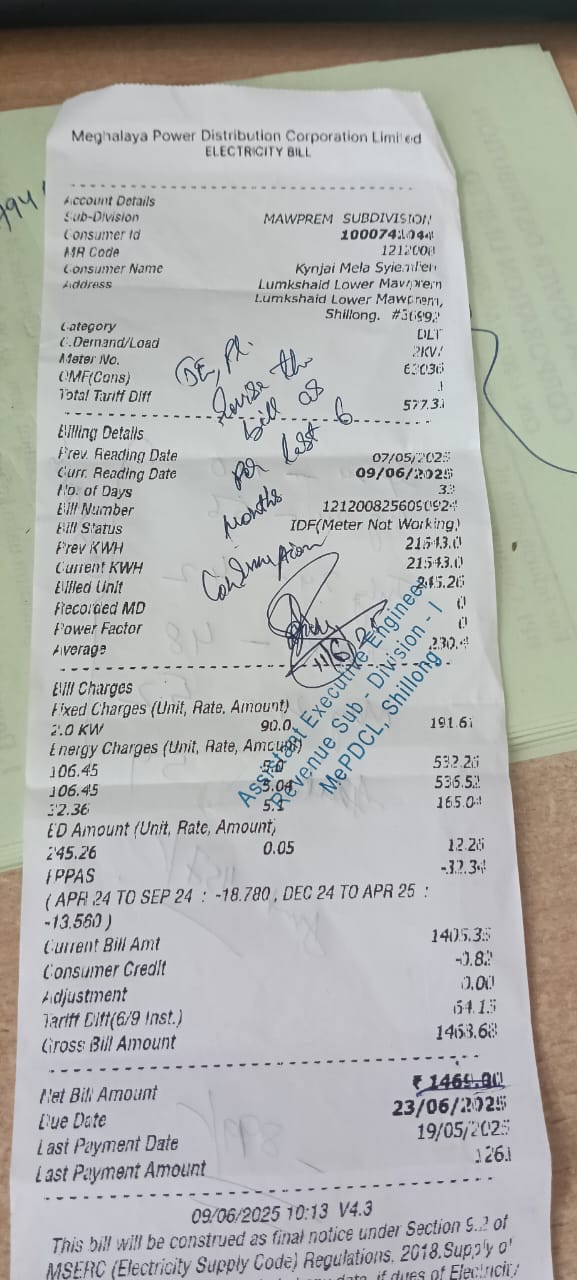 Meghalaya Power Distribution Corporation Limited
ELECTRICITY BILL
Account Details
Sub-Division MAWPREM SUBDIVISION
Consumer Id
MR Code
Consumer Name Kynjai Mela
Address Lumkshaid Lower Mawprem
Lumkshaid Lower Mawprem,
Shillong.
Category DLT
C.Demand/Load
Meter No. 63036
OMF(Cons)
Total Tariff Diff
DE, Pl.
revise the
bill as
per last 6
Months
Consumption
11/6/25
Billing Details
Prev. Reading Date 07/05/2025
Curr. Reading Date 09/06/2025
No. of Days 33
Bill Number
Bill Status IDF(Meter Not Working)
Prev KWH 21543.0
Current KWH 21543.0
Billed Unit 245.26
Recorded MD 0
Power Factor 0
Average
Assistant Executive Engineer
Revenue Sub - Division - I
MePDCL, Shillong
Bill Charges
Fixed Charges (Unit, Rate, Amount)
2.0 KW 90.0 191.61
Energy Charges (Unit, Rate, Amount)
106.45 532.25
106.45 536.52
32.36 165.04
ED Amount (Unit, Rate, Amount)
245.26 0.05 12.26
FPPAS -32.34
( APR 24 TO SEP 24 : -18.780 , DEC 24 TO APR 25 :
-13.560 )
Current Bill Amt 1405.35
Consumer Credit -0.82
Adjustment 0.00
Tariff Diff(6/9 Inst.) 64.15
Gross Bill Amount 1468.68
Net Bill Amount ₹ 1469.00
Due Date 23/06/2025
Last Payment Date 19/05/2025
Last Payment Amount
09/06/2025 10:13 V4.3
This bill will be construed as final notice under Section 9.2 of
MSERC (Electricity Supply Code) Regulations, 2018.Supply of
if dues of Electricity